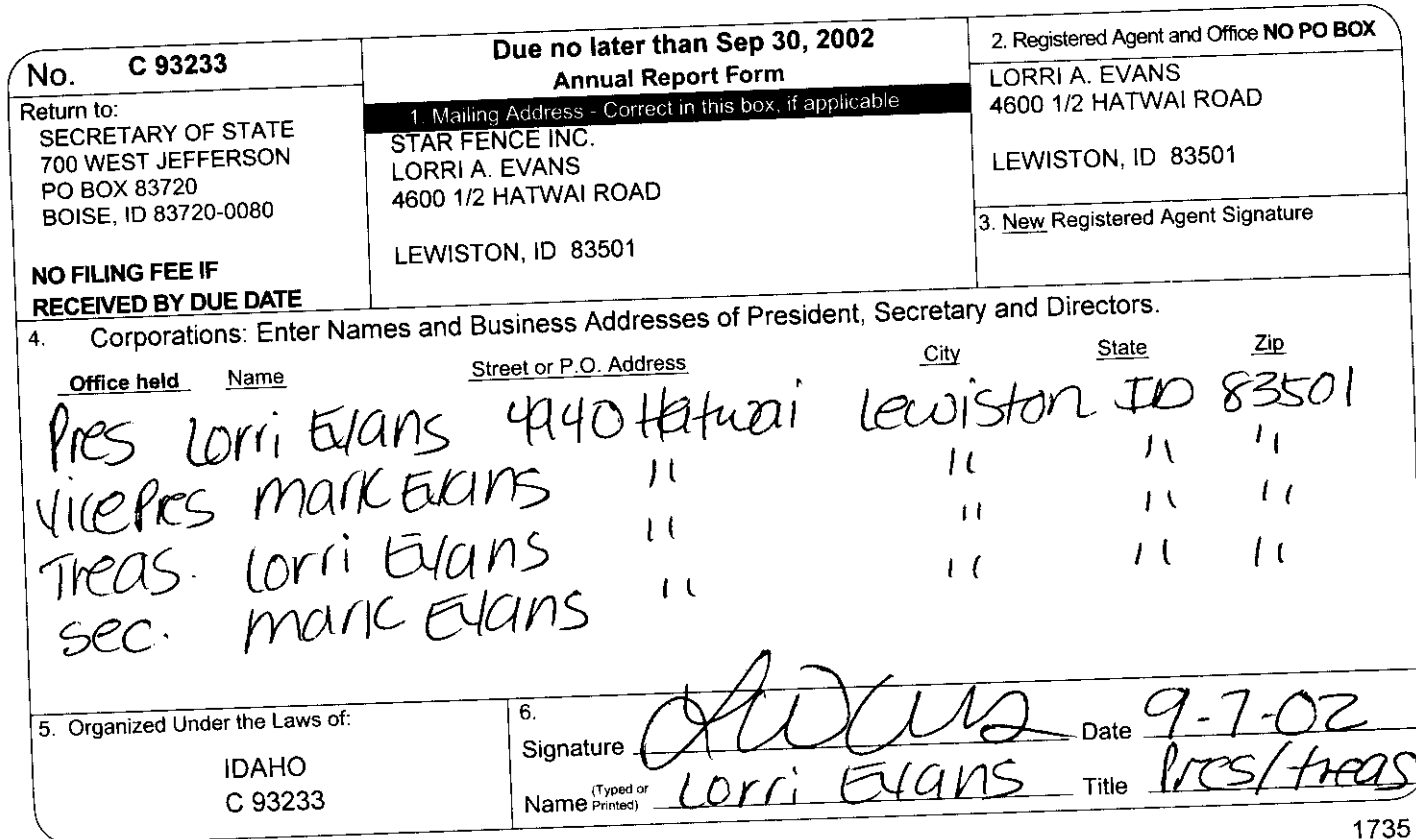 No. C 93233
Return to:
SECRETARY OF STATE
700 WEST JEFFERSON
PO BOX 83720
BOISE, ID 83720-0080
NO FILING FEE IF
RECEIVED BY DUE DATE
Due no later than Sep 30, 2002
Annual Report Form
1. Mailing Address - Correct in this box, if applicable
STAR FENCE INC.
LORRI A. EVANS
4600 1/2 HATWAI ROAD
LEWISTON, ID 83501
2. Registered Agent and Office NO PO BOX
LORRI A. EVANS
4600 1/2 HATWAI ROAD
LEWISTON, ID 83501
3. New Registered Agent Signature
4. Corporations: Enter Names and Business Addresses of President, Secretary and Directors.
Office held Name Street or P.O. Address City State Zip
Pres Lorri Evans 4940 Hatwai Lewiston ID 83501
Vice Pres Mark Evans " " " "
Treas. Lorri Evans " " " "
Sec. Mark Evans " " " "
5. Organized Under the Laws of:
IDAHO
C 93233
6.
Signature Date 9-7-02
Name (Typed or Printed) Lorri Evans Title Pres/treas
1735